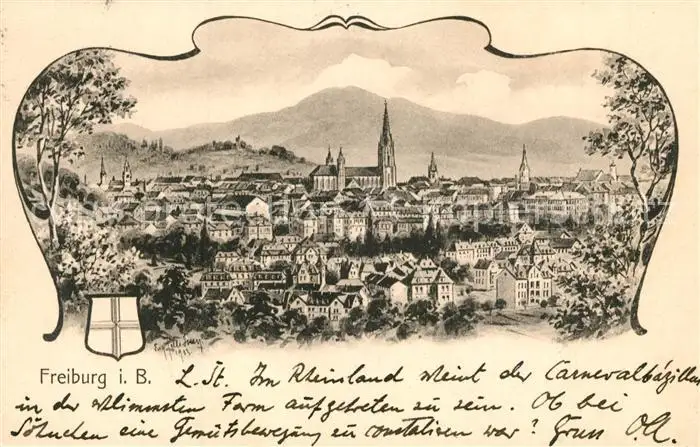 Freiburg i. B.
L. St. Im Rheinland scheint der Carnevalbázillus
in der schlimmsten Form aufgetreten zu sein. Ob bei
Söhnchen eine Gemütsbewegung zu constatieren war? Gruss